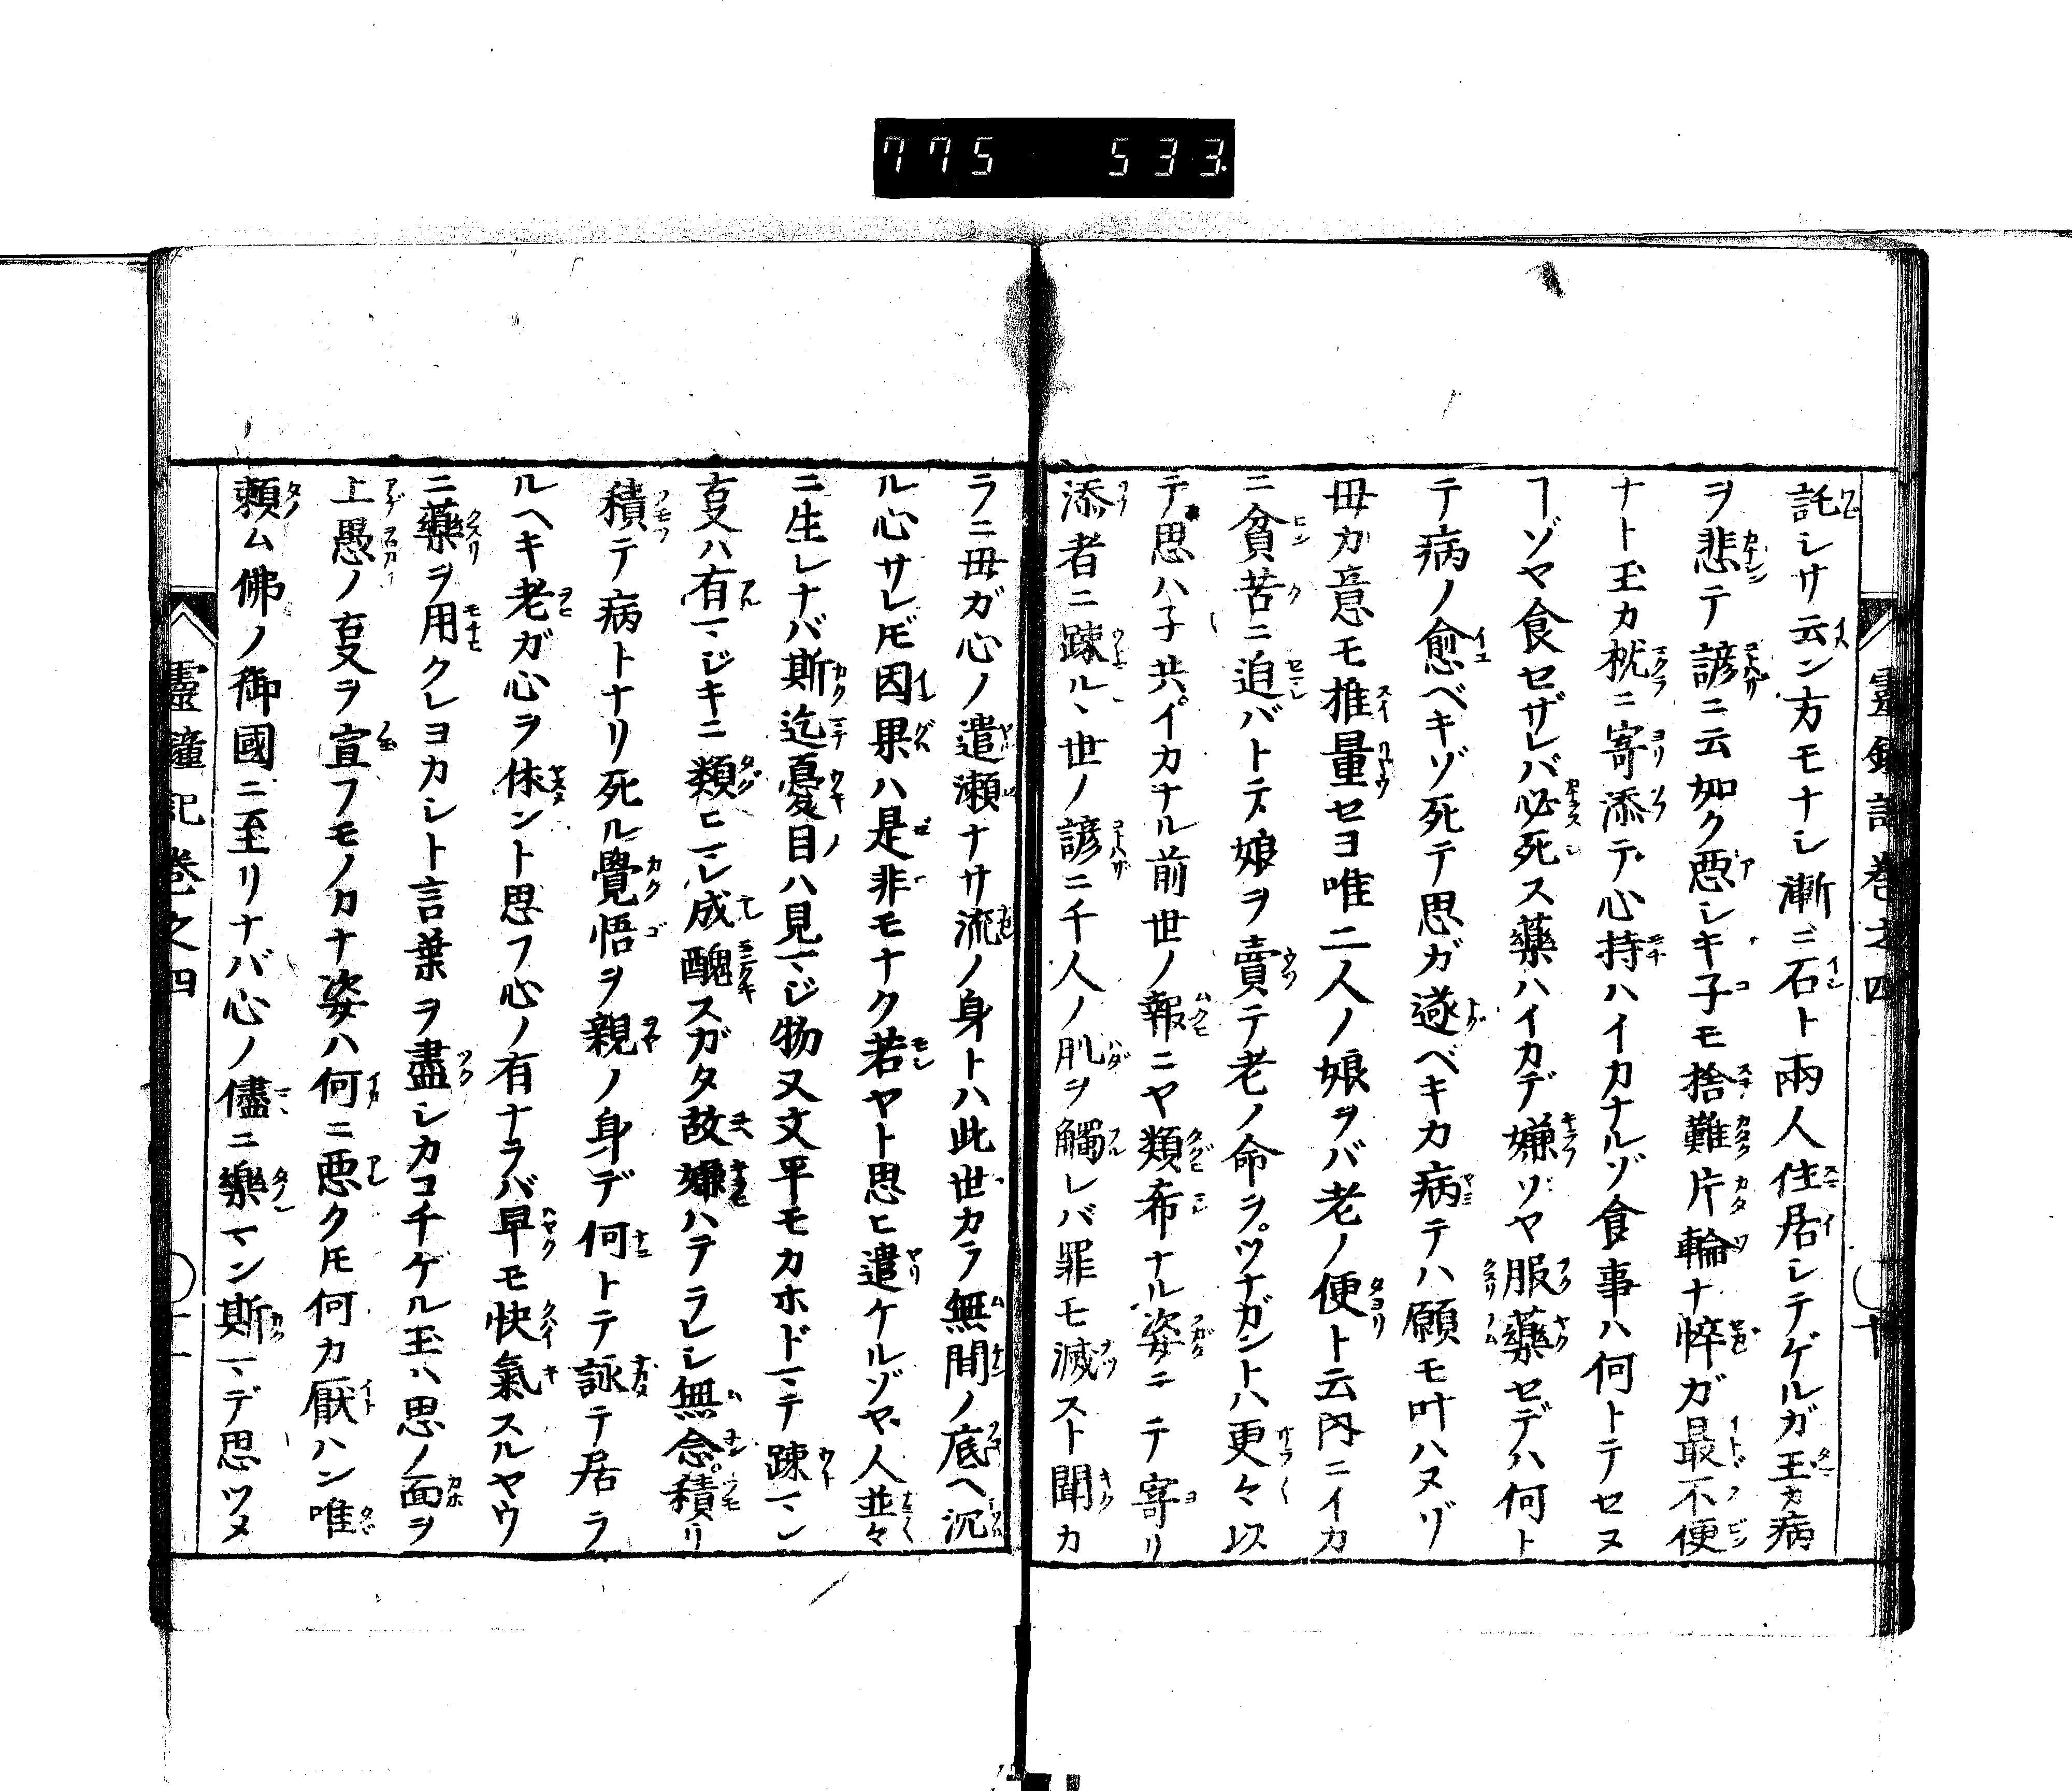 775 533
託シサ云ン方モナシ漸ニ石ト兩人住居シテゲルガ玉カ病
ヲ悲テ諺ニ云如ク惡シキ子モ捨難片輪ナ悴ガ最不便
ナト玉カ枕ニ寄添テ心持ハイカナルゾ食事ハ何トテセヌ
ヿゾヤ食セザレバ必死ス藥ハイカデ嫌ゾヤ服藥セデハ何ト
テ病ノ愈ベキゾ死テ思ガ遂ベキカ病テハ願モ叶ハヌゾ
母カ意モ推量セヨ唯二人ノ娘ヲバ老ノ便ト云內ニイカ
ニ貧苦ニ迫バトテ娘ヲ賣テ老ノ命ヲツナガントハ更々以
テ思ハ子共イカナル前世ノ報ニヤ類布ナル姿ニテ寄リ
添者ニ疎ルヽ世ノ諺ニ千人ノ肌ヲ觸レバ罪モ滅スト聞カ
ラニ母ガ心ノ遣瀬ナサ流ノ身トハ此世カラ無間ノ底ヘ沉
ル心サレ𪜈因果ハ是非モナク若ヤト思ヒ遣ケルゾヤ人並々
ニ生レナバ斯迄憂目ハ見マジ物又文平モカホドマテ疎マシ
亊ハ有マジキニ類ヒマレ成醜スガタ故嫌ハテラレシ無念積リ
積テ病トナリ死ル覺悟ヲ親ノ身デ何トテ詠テ居ラ
ルヘキ老ガ心ヲ休ント思フ心ノ有ナラバ早モ快氣スルヤウ
ニ藥ヲ用クレヨカシト言葉ヲ盡シカコチゲル玉ハ思ノ面ヲ
上愚ノ亊ヲ宣フモノカナ姿ハ何ニ惡ク𪜈何カ厭ハン唯
賴ム佛ノ御國ニ至リナバ心ノ儘ニ樂マン斯マデ思ツメ
卷之四